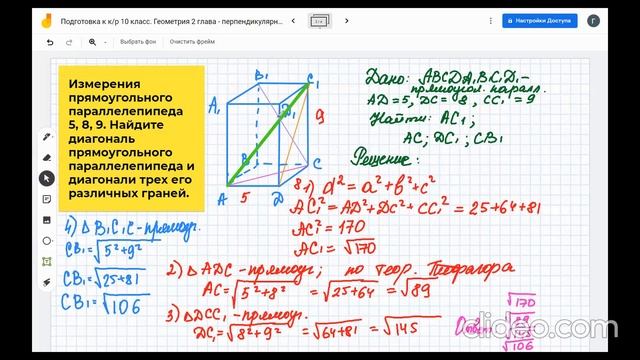 Подготовка к к/р 10 класс. Геометрия 2 глава - перпендикулярн...
Настройки Доступа
Г
Выбрать фон
Очистить фрейм
Измерения
прямоугольного
параллелепипеда
5, 8, 9. Найдите
диагональ
прямоугольного
параллелепипеда и
диагонали трех его
различных граней.
B₁
C₁
A₁
D₁
9
B
C
A
5
D
8
Дано: ABCDA₁B₁C₁D₁ -
прямоуг. паралл.
AD = 5, DC = 8, CC₁ = 9
Найти: AC₁;
AC; DC₁; CB₁
Решение:
1) d² = a² + b² + c²
AC₁² = AD² + DC² + CC₁² = 25 + 64 + 81
AC₁² = 170
AC₁ = √170
2) △ADC - прямоуг; по теор. Пифагора
AC = √5² + 8² = √25 + 64 = √89
3) △DCC₁ - прямоуг.
DC₁ = √8² + 9² = √64 + 81 = √145
4) △B₁C₁C - прямоуг.
CB₁ = √5² + 9²
CB₁ = √25 + 81
CB₁ = √106
Ответ:
√170
√89
√145
√106
clideo.com